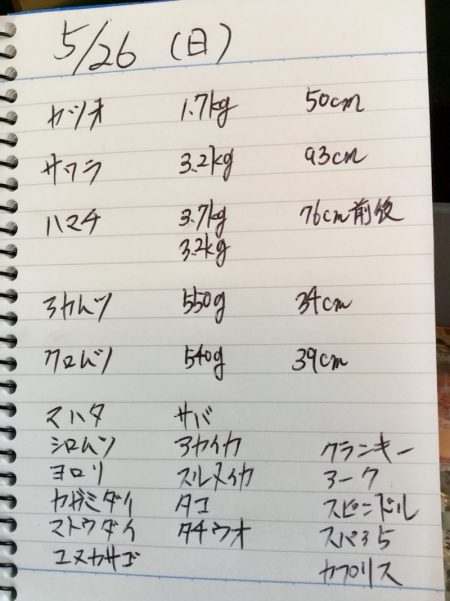 5/26 (日)
カツオ 1.7kg 50cm
サワラ 3.2kg 93cm
ハマチ 3.7kg 76cm前後
3.2kg
アカムツ 550g 34cm
クロムツ 540g 39cm
マハタ サバ
シロムツ アカイカ クランキー
ヨロリ スルメイカ アーク
カガミダイ タコ スピンドル
マトウダイ タチウオ
ユメカサゴ カプリス